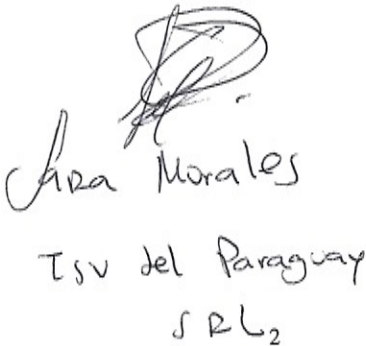 Sara Morales
TSV del Paraguay
SRL2